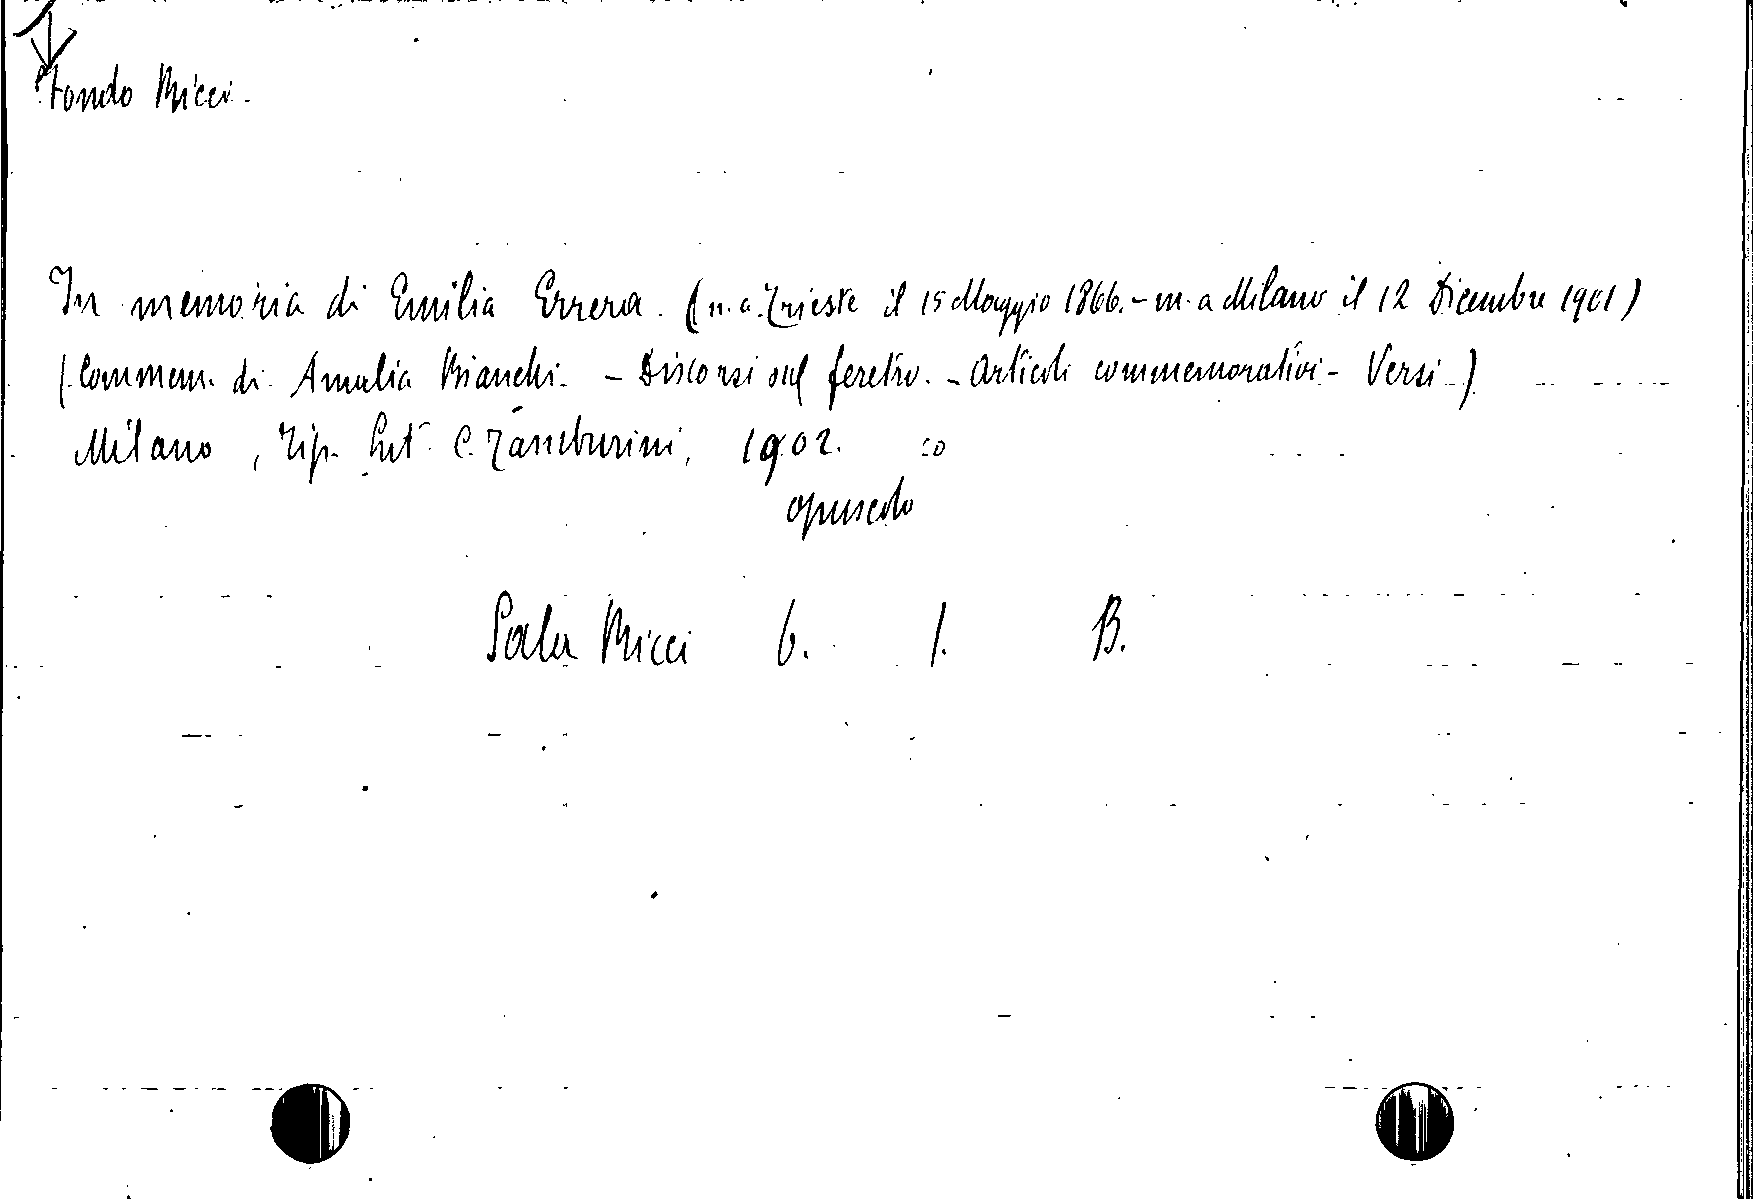 Fondo Ricci.
In memoria di Emilia Errera. (n. a. Trieste il 15 Maggio 1866. - m. a Milano il 12 Dicembre 1901)
(Commem. di Amalia Bianchi. - Discorsi sul feretro. - Articoli commemorativi - Versi -)
Milano, Tip. C. Tamburini, 1902.
opuscolo
Sala Ricci 6. 1. B.